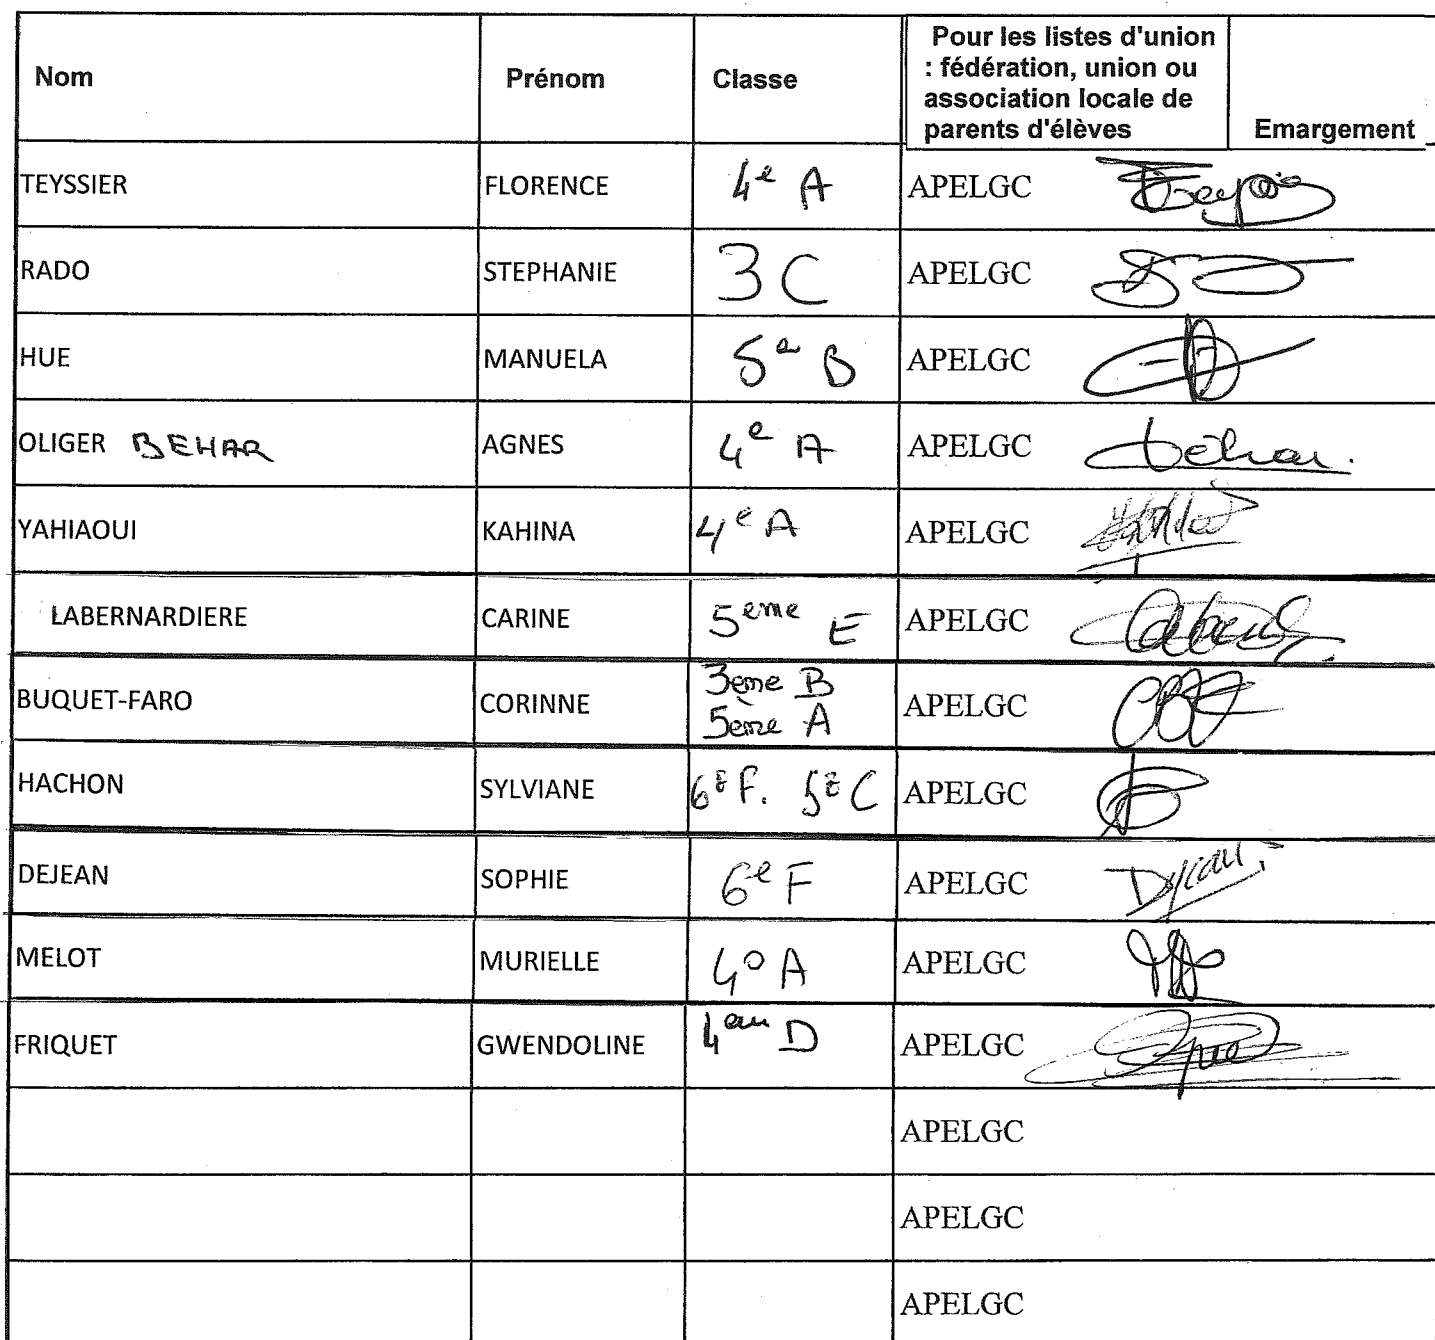 Nom Prénom Classe Pour les listes d'union : fédération, union ou association locale de parents d'élèves Emargement
TEYSSIER FLORENCE 4e A APELGC
RADO STEPHANIE 3 C APELGC
HUE MANUELA 5e B APELGC
OLIGER BEHAR AGNES 4e A APELGC Behar.
YAHIAOUI KAHINA 4e A APELGC
LABERNARDIERE CARINE 5eme E APELGC
BUQUET-FARO CORINNE 3ème B 5ème A APELGC
HACHON SYLVIANE 6e F. 5e C APELGC
DEJEAN SOPHIE 6e F APELGC
MELOT MURIELLE 4° A APELGC
FRIQUET GWENDOLINE 4em D APELGC
APELGC
APELGC
APELGC